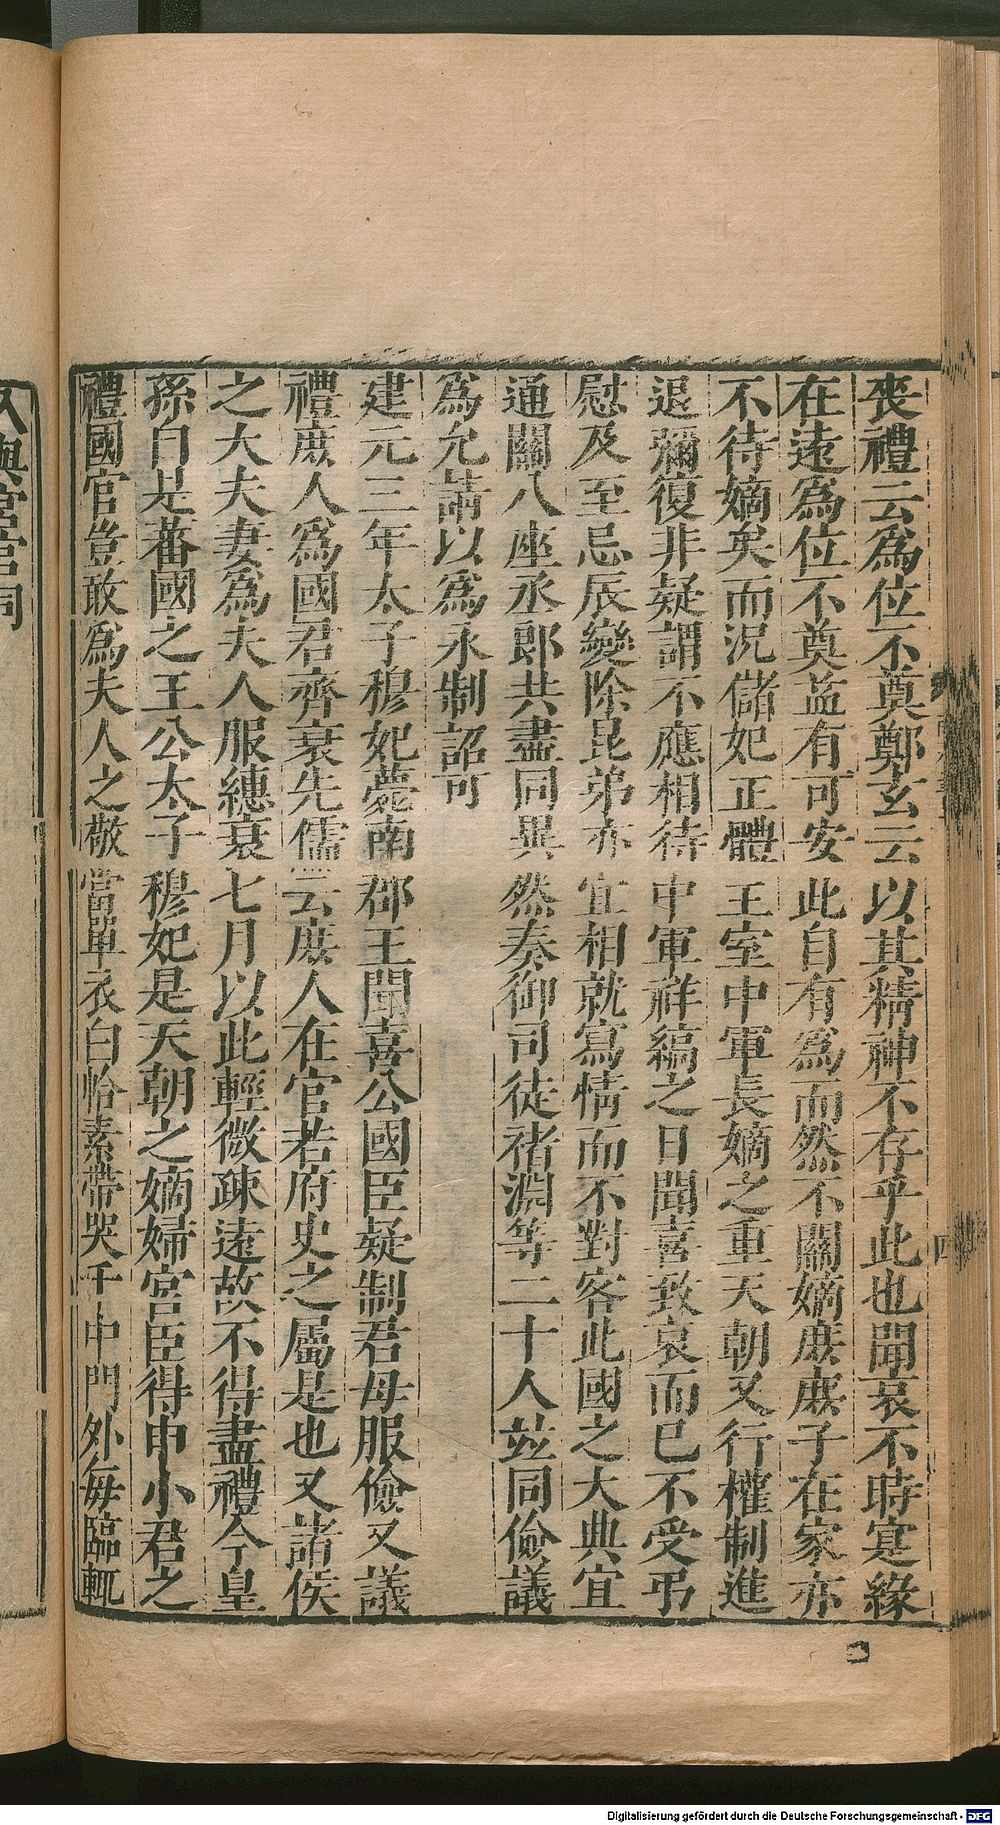 喪禮云爲位不奠鄭玄云以其精神不存乎此也聞哀不時寔緣
在遠爲位不奠益有可安此自有爲而然不關嫡庶庶子在家亦
不待嫡矣而況儲妃正體王室中軍長嫡之重天朝又行權制進
退彌復非疑謂不應相待中軍祥縞之日聞喜致哀而已不受弔
慰及至忌辰變除昆弟亦宜相就寫情而不對客此國之大典宜
通關八座丞郎共盡同異然奏御司徒褚淵等二十人竝同儉議
爲允請以爲永制詔可
建元三年太子穆妃薨南郡王聞喜公國臣疑制君母服儉又議
禮庶人爲國君齊衰先儒云庶人在官若府史之屬是也又諸侯
之大夫妻爲夫人服繐衰七月以此輕微疎遠故不得盡禮今皇
孫自是蕃國之王公太子穆妃是天朝之嫡婦宮臣得申小君之
禮國官豈敢爲夫人之敬當單衣白帢素帶哭于中門外每臨輒
入與宮官同
四
Digitalisierung gefördert durch die Deutsche Forschungsgemeinschaft - DFG